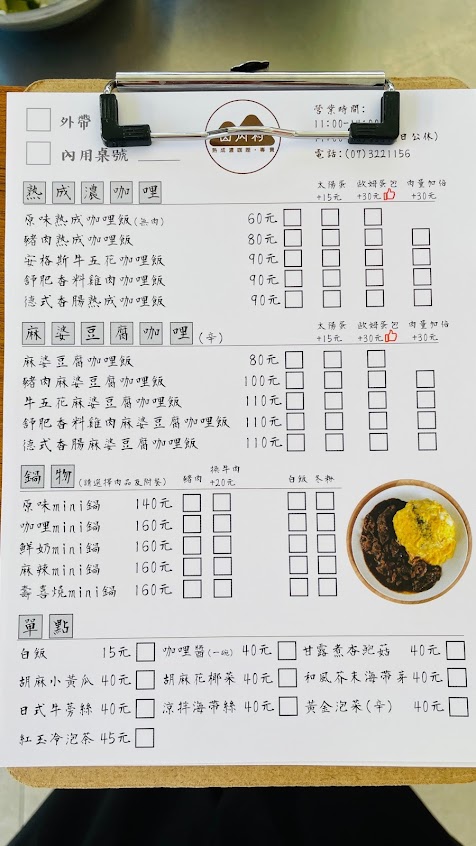 外帶
內用桌號
熟成濃咖哩‧專賣
營業時間:
電話:(07)3221156
熟成濃咖哩 太陽蛋+15元 歐姆蛋包+30元 肉量加倍+30元
原味熟成咖哩飯(無肉) 60元
豬肉熟成咖哩飯 80元
安格斯牛五花咖哩飯 90元
舒肥香料雞肉咖哩飯 90元
德式香腸熟成咖哩飯 90元
麻婆豆腐咖哩(辛) 太陽蛋+15元 歐姆蛋包+30元 肉量加倍+30元
麻婆豆腐咖哩飯 80元
豬肉麻婆豆腐咖哩飯 100元
牛五花麻婆豆腐咖哩飯 110元
舒肥香料雞肉麻婆豆腐咖哩飯 110元
德式香腸麻婆豆腐咖哩飯 110元
鍋物(請選擇肉品及附餐) 豬肉 換牛肉+20元 白飯 冬粉
原味mini鍋 140元
咖哩mini鍋 160元
鮮奶mini鍋 160元
麻辣mini鍋 160元
壽喜燒mini鍋 160元
單點
白飯 15元 咖哩醬(一碗) 40元 甘露煮杏鮑菇 40元
胡麻小黃瓜 40元 胡麻花椰菜 40元 和風芥末海帶芽 40元
日式牛蒡絲 40元 涼拌海帶絲 40元 黃金泡菜(辛) 40元
紅玉冷泡茶 45元